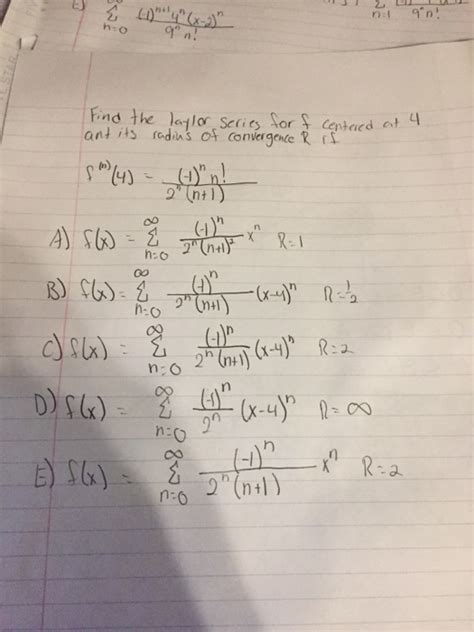 E) ∞ Σ n=0 (-1)^{n+1} 4^n (x-2)^n / 9^n n!
Σ n=1 9^n n!
Find the Taylor series for f centered at 4
ant its radius of convergence R if
f^{(n)}(4) = (-1)^n n! / 2^n (n+1)
A) f(x) = ∞ Σ n=0 (-1)^n / 2^n (n+1)^2 x^n R=1
B) f(x) = ∞ Σ n=0 (-1)^n / 2^n (n+1) (x-4)^n R=1/2
C) f(x) = ∞ Σ n=0 (-1)^n / 2^n (n+1) (x-4)^n R=2
D) f(x) = ∞ Σ n=0 (-1)^n / 2^n (x-4)^n R=∞
E) f(x) = ∞ Σ n=0 (-1)^n / 2^n (n+1) x^n R=2